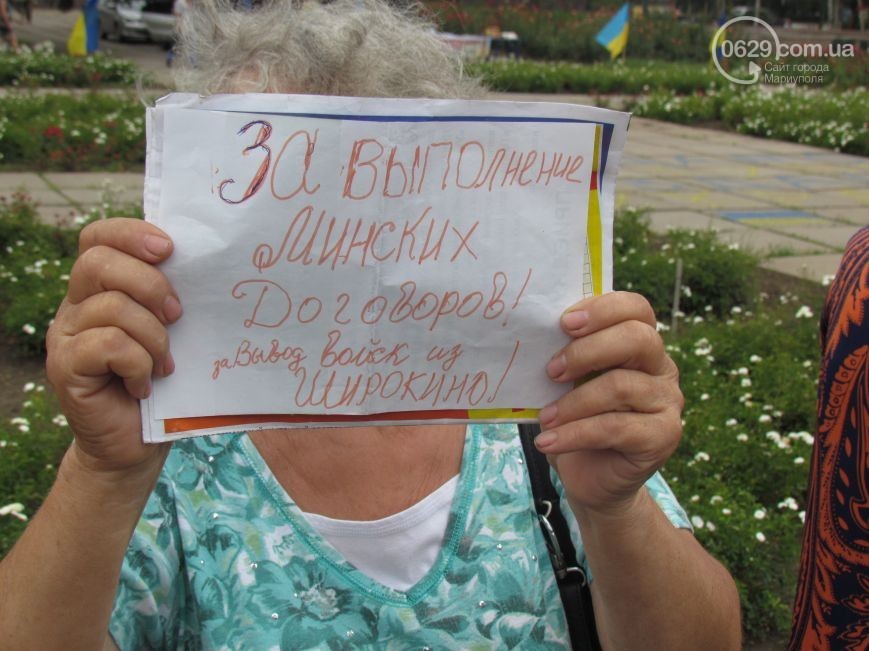 0629.com.ua
Сайт города
Мариуполя
За выполнение
Минских
Договоров!
за вывод войск из
Широкино!